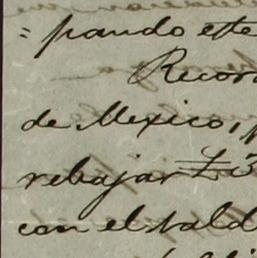 = pando este
Recor
de Mexico,
rebajar £3
con el sald